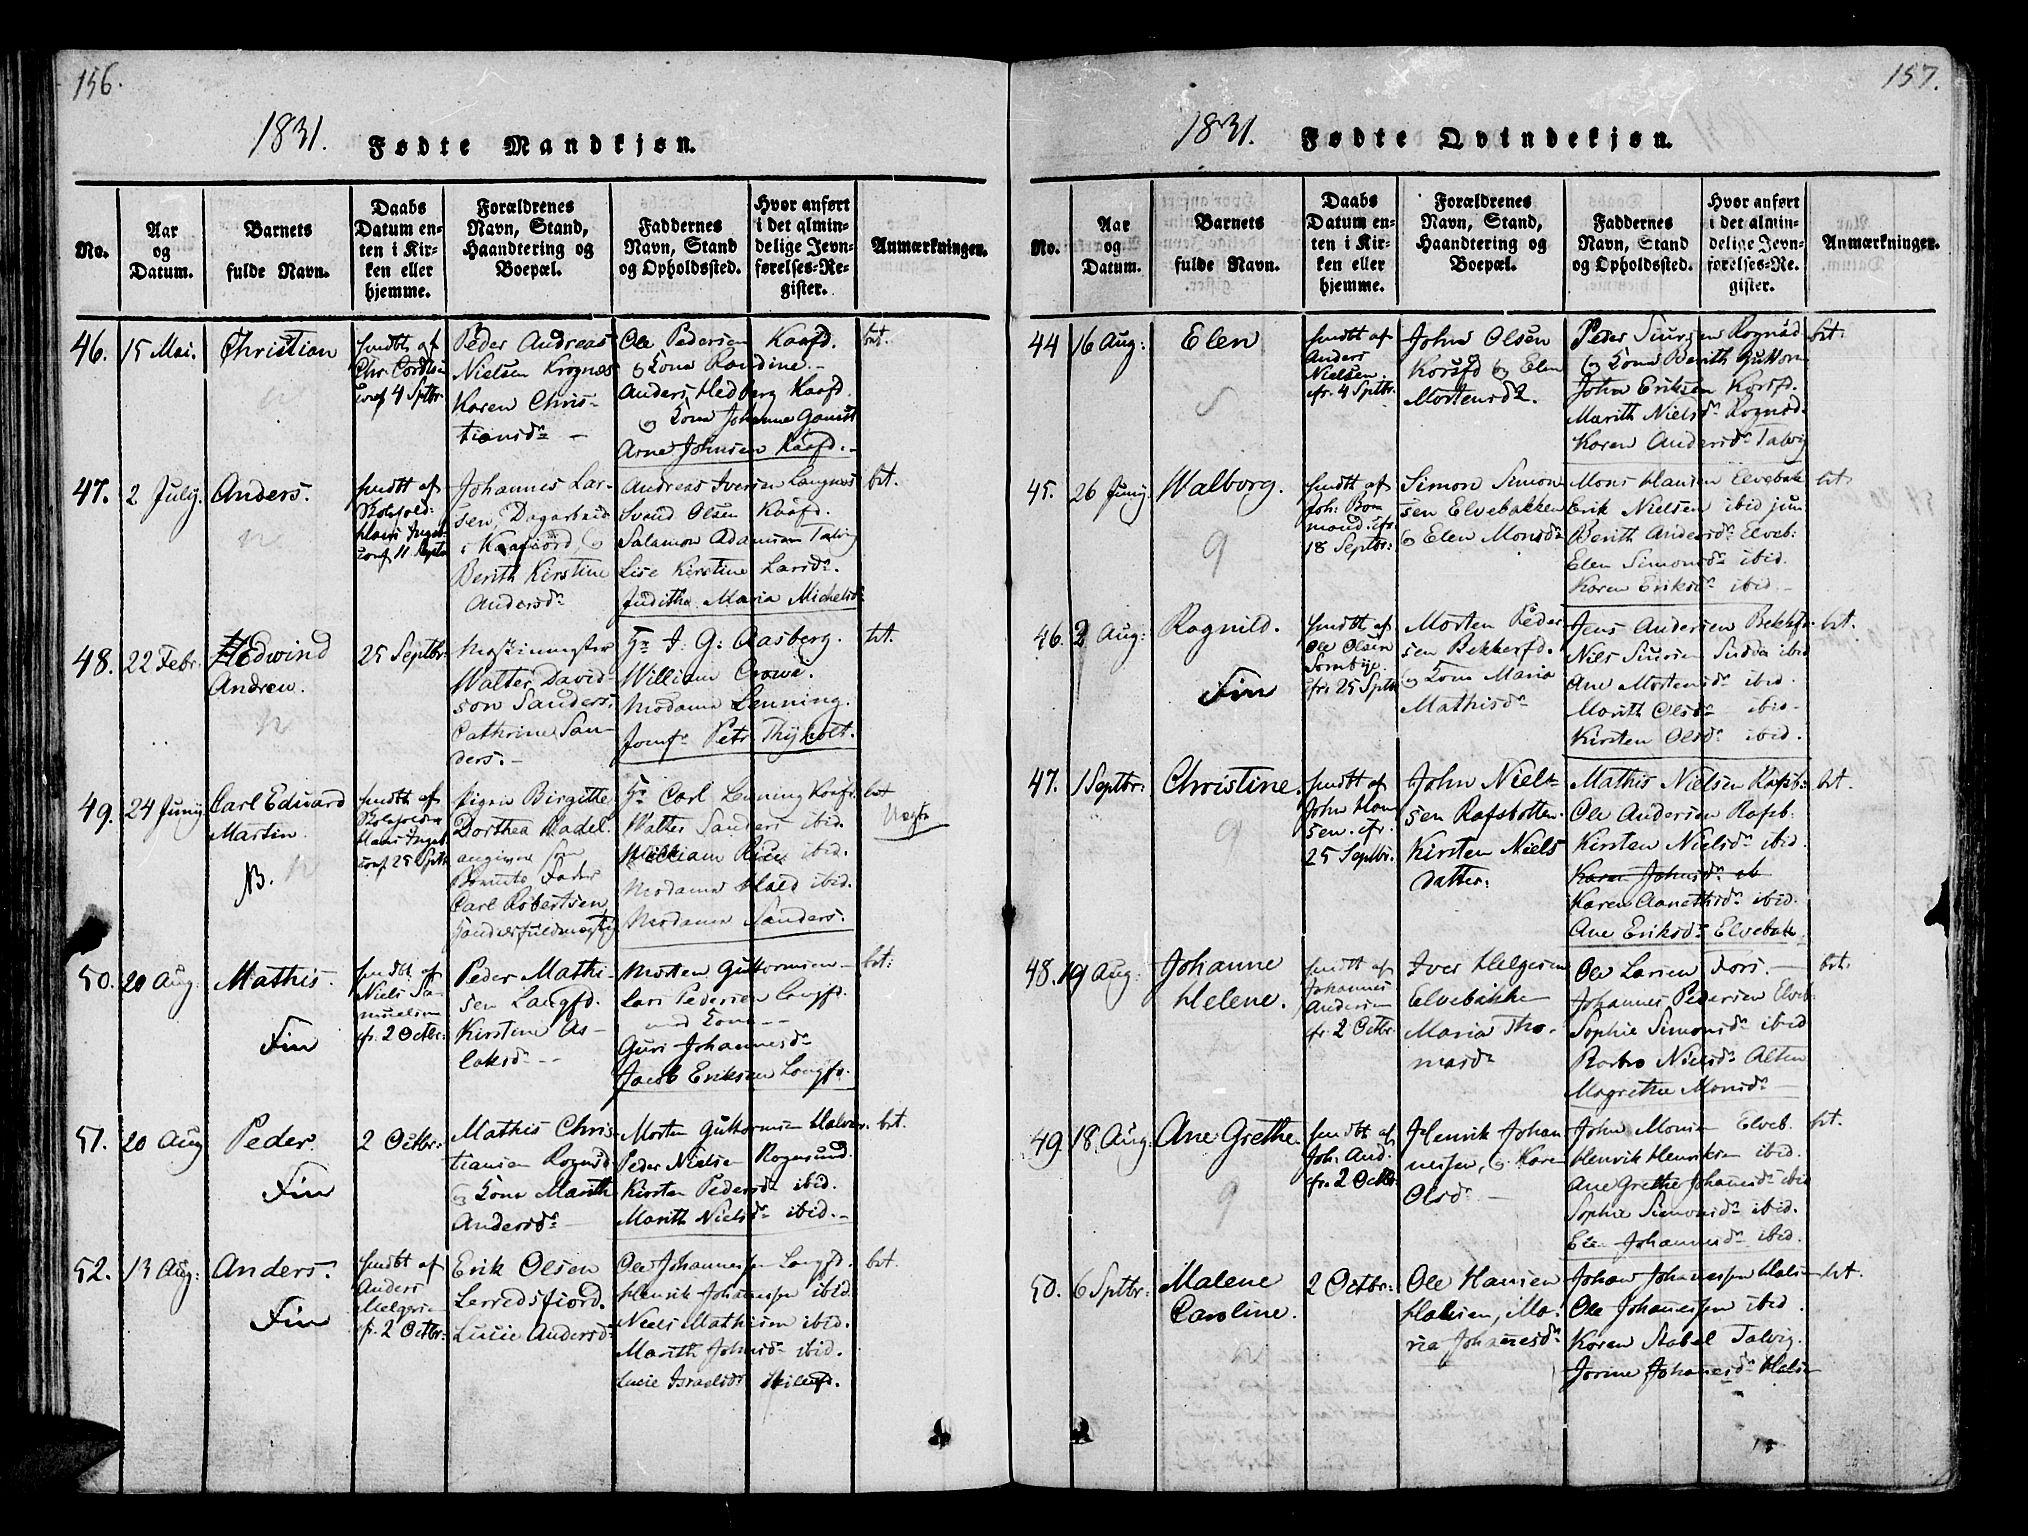 156.
1831. Fødte Mandkjøn.
No.
Aar
og
Datum.
Barnets
fulde Navn.
Daabs
Datum en-
ten i Kir-
ken eller
hjemme.
Forældrenes
Navn, Stand,
Haandtering og
Boepæl.
Faddernes
Navn, Stand
og Opholdssted.
Hvor anført
i det almin-
delige Jevn-
førelses-Re-
gister.
Anmærkningen.
46. 15 Mai. Christian
hmdbt af
conf 4 Sptbr.
Peder Andreas
Nielsen Krognæs
Karen Chris-
tiansdr
Ole Pedersen Kaafd.
og Kone Randine.
Anders Hedberg Kaafd.
og Kone Johanne
Arne Johnsen Kaafd.
bt.
47. 2 July. Anders.
hmdbt af
conf 11 Septr
Johannes Lar-
sen, Dagarbeid
i Kaafiord, og
Berith Kirstine
Andersdr
Andreas Iversen Langnæs
Svend Olsen Kaafd.
Salamon Adamsen Talvig
Lise Kirstine Larsdr.
Juditha Maria Michelsdr
bt.
48. 22 Febr. Hedwind
Andrew.
25 Septbr.
Walter David-
son Sanders,
Cathrine San-
ders.
Hr J. G. Aasberg.
William Crowe.
Madame Lenning.
Jomfr Petr Thyholt.
bt.
49. 24 Juny Carl Eduard
Martin.
hmdbt af
conf 25 Sptr
Pigen Birgitte
Dorthea Nadel
angiven som
Barnets Fader
Carl Robertsen
Hr Carl Lenning Kaafd.
Walter Sanders ibid.
William Rice ibid.
Madame ibid.
Madame Sanders.
bt
Uægte
50. 20 Aug: Mathis.
Fin
hmdbt af
Niels Sa-
muelsen
cfr. 2 Octbr.
Peder Mathi-
sen Langfd.
Kirstine As-
laksdr
Morten Guttormsen
Lars Pedersen Langfd.
med Kone
Guri Johannesdr
Jacob Eriksen Langfd.
bt:
51. 20 Aug Peder.
Fin
2 Octbr:
Mathis Chris-
tiansen Rognsd
og Kone Marith
Andersdr
Morten Guttormsen
Peder Nielsen Rognsund.
Kirsten Pedersdr ibid.
Marith Nielsdr ibid.
bt.
52. 13 Aug: Anders.
Fin
hmdbt af
Anders
Helgesen
cfr. 2 Octbr:
Erik Olsen
Lerredsfiord.
Lucie Andersdr
Ole Johannessen Langfd.
Henrik Johannessen ibid.
Niels Mathisen ibid.
Marith Johnsdr ibid.
Lucie Israelsdr
bt.
157.
1831. Fødte Qvindekjøn.
No.
Aar
og
Datum.
Barnets
fulde Navn.
Daabs
Datum en-
ten i Kir-
ken eller
hjemme.
Forældrenes
Navn, Stand,
Haandtering og
Boepæl.
Faddernes
Navn, Stand
og Opholdssted.
Hvor anført
i det almin-
delige Jevn-
førelses-Re-
gister.
Anmærkninger.
44 16 Aug: Elen
hmdbt af
Anders
Nielsen.
cfr. 4 Sptbr.
John Olsen
Korsfd og Elen
Mortensdr.
Peder Siursen Rognsd
og Kone Berith Guttorm
John Eriksen Korsfd.
Marith Nielsdr Rognsd.
Karen Andersdr Talvig
bt.
45. 26 Juny Walborg.
hmdbt af
18 Septbr:
Simon Simon-
sen Elvebakken
og Elen Monsdr
Mons Hansen Elvebak
Erik Nielsen ibid jun.
Berith Andersdr Elveb.
Elen Simonsdr ibid.
Karen Eriksdr ibid.
bt.
46. 2 Aug: Ragnild.
Fin
hmdbt af
Ole Olsen
cfr. 25 Sptr
Morten Peder
sen Bekkerfd.
og Kone Maria
Mathisdr
Jens Andersen Bekkfr
Nils Siursen Sudda ibid
Ane Mortensdr ibid.
Marith Olsdr ibid.
Kirsten Olsdr ibid.
bt.
47. 1 Septbr: Christine.
hmdbt af
John Han
sen. cfr.
25 Septbr.
John Niel-
sen Rafsbotten
Kirsten Niels
datter.
Mathis Nielsen Rafsb.
Ole Andersen Rafsb.
Kirsten Nielsdr ibid.
Karen Johnsdr ib
Karen Aanethsdr ibid.
Ane Eriksdr Elvebak.
bt.
48. 19 Aug: Johanne
Helene.
hmdbt af
Johannes
Andersen
cfr. 2 Octbr.
Iver Helgesen
Elvebakken
Maria Tho-
masdr
Ole Larsen
Johannes Pedersen Elveb.
Sophie Simonsdr ibid
Barbro Nielsdr Alten
Magrethe Monsdr
bt.
49 18 Aug: Ane Grethe.
hmdbt af
Joh: And.
cfr. 2 Octbr.
Henrik Johan
nessen, og Karen
Olsdr
John Monsen Elveb.
Henrik Henriksen ibid.
Ane Grethe Johannesdr ibid
Sophie Simonsdr ibid.
Johannesdr ibid.
bt.
50. 6 Sptbr: Malene
Caroline.
2 Octbr:
Ole Hansen
Halsen, Ma-
ria Johannesdr
Johan Johannessen Halsen
Ole Johannessen ibid.
Karen Stabel Talvig.
Jorine Johannesdr Halsen
bt.